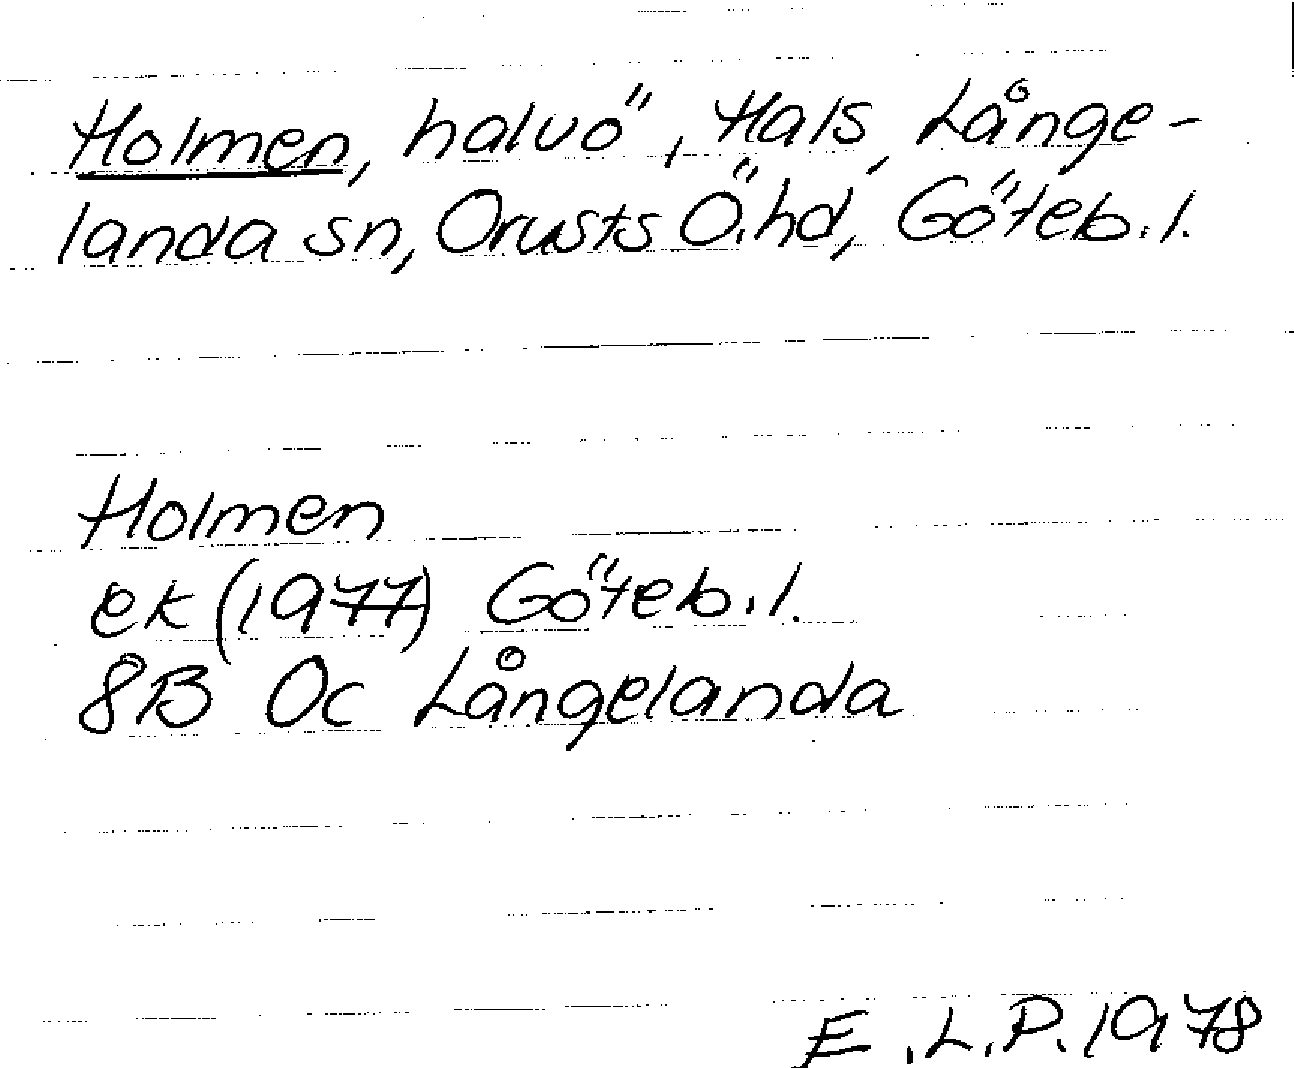 Holmen, halvö, Hals, Långe-
landa sn, Orusts Ö.hd, Göteb.l.
Holmen
ek (1977) Göteb.l.
8B 0c Långelanda
E.L.P. 1978